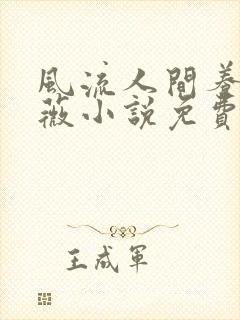 風流人間養
薇小説免費
王成軍